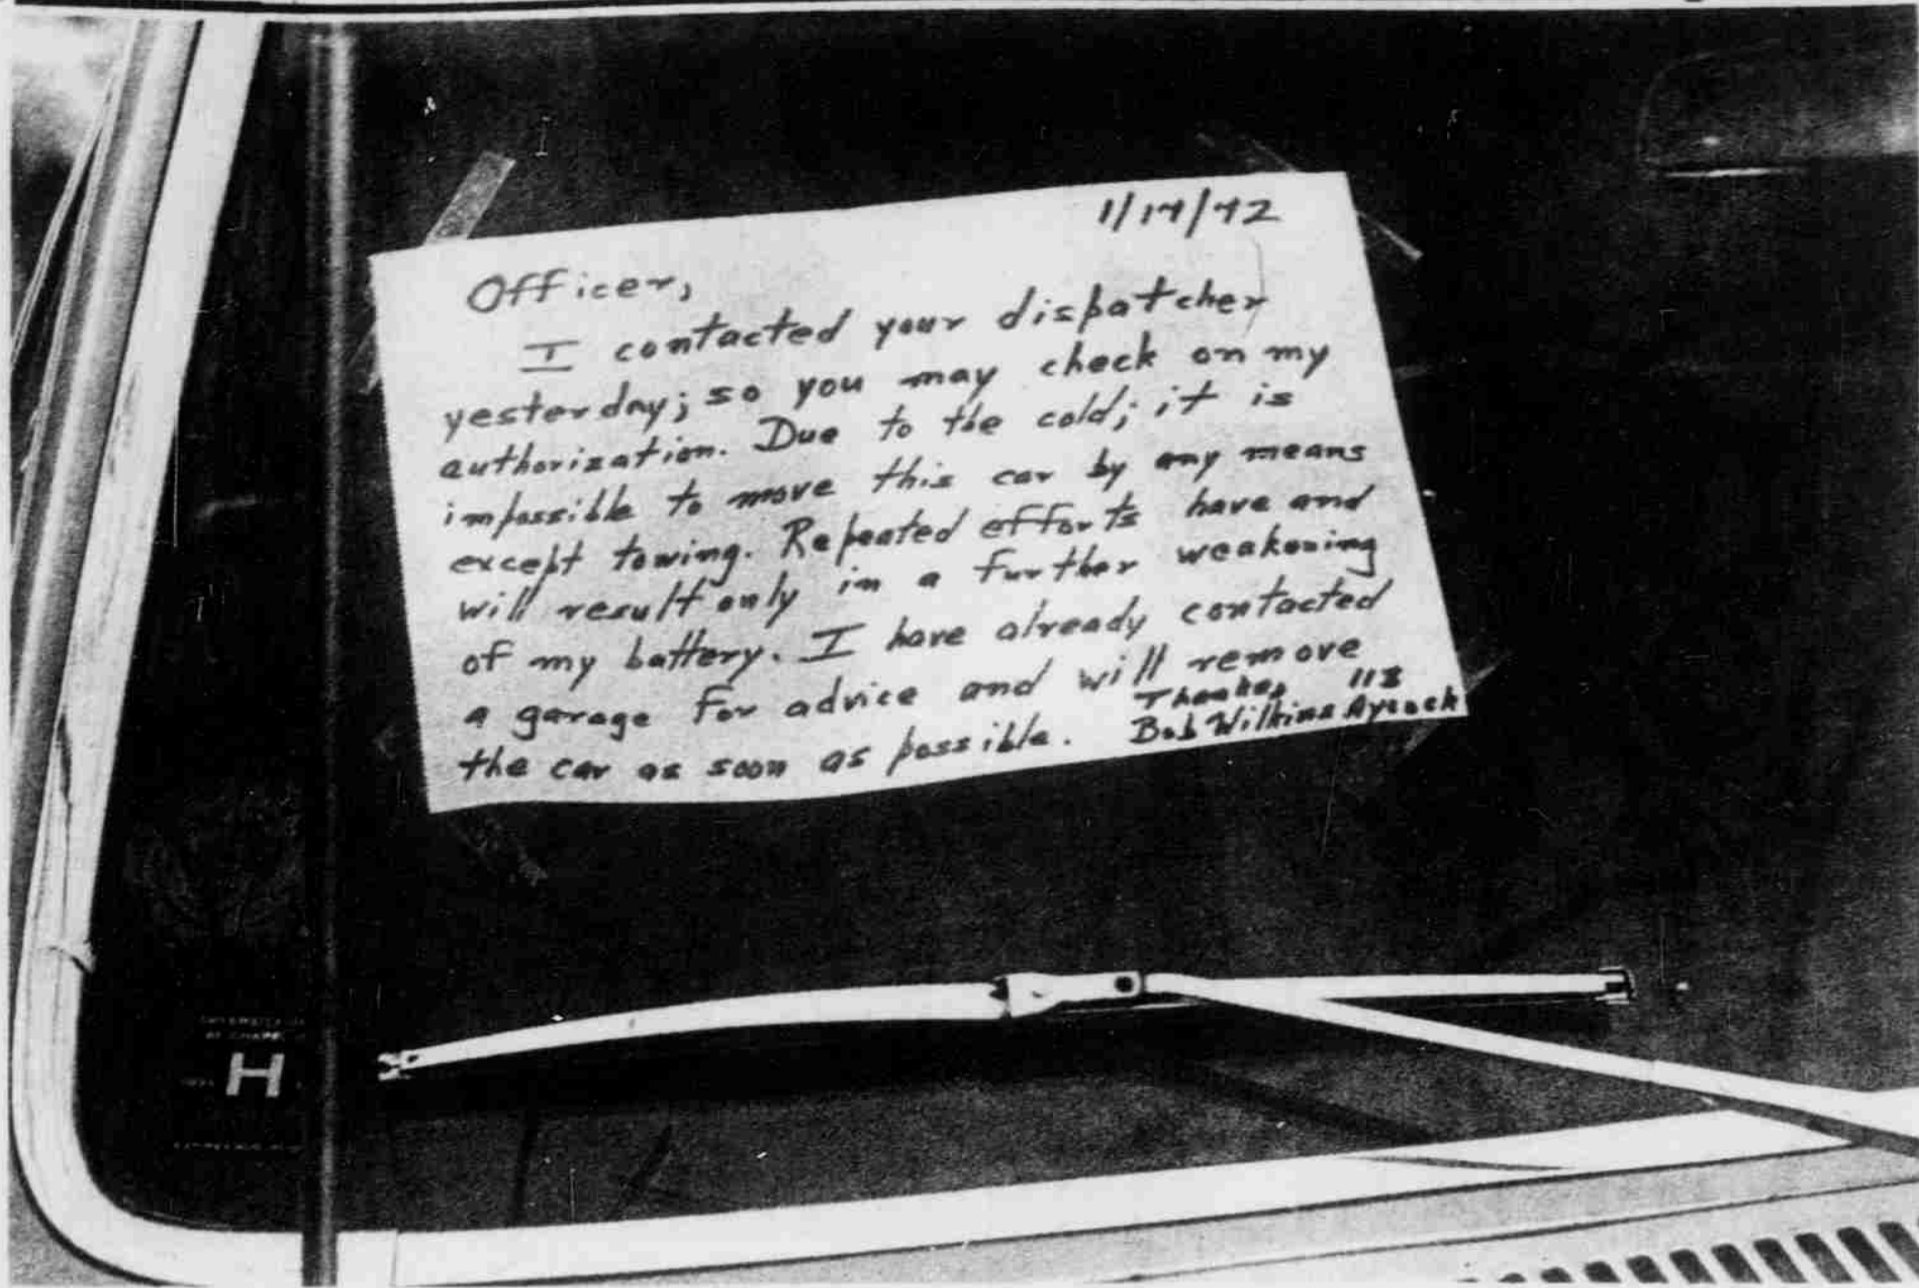 1/17/72
Officer,
I contacted your dispatcher
yesterday; so you may check on my
authorization. Due to the cold; it is
impossible to move this car by any means
except towing. Repeated efforts have and
will result only in a further weakening
of my battery. I have already contacted
a garage for advice and will remove
the car as soon as possible.
Thanks,
Bob Wilkins
118
Aycock
H